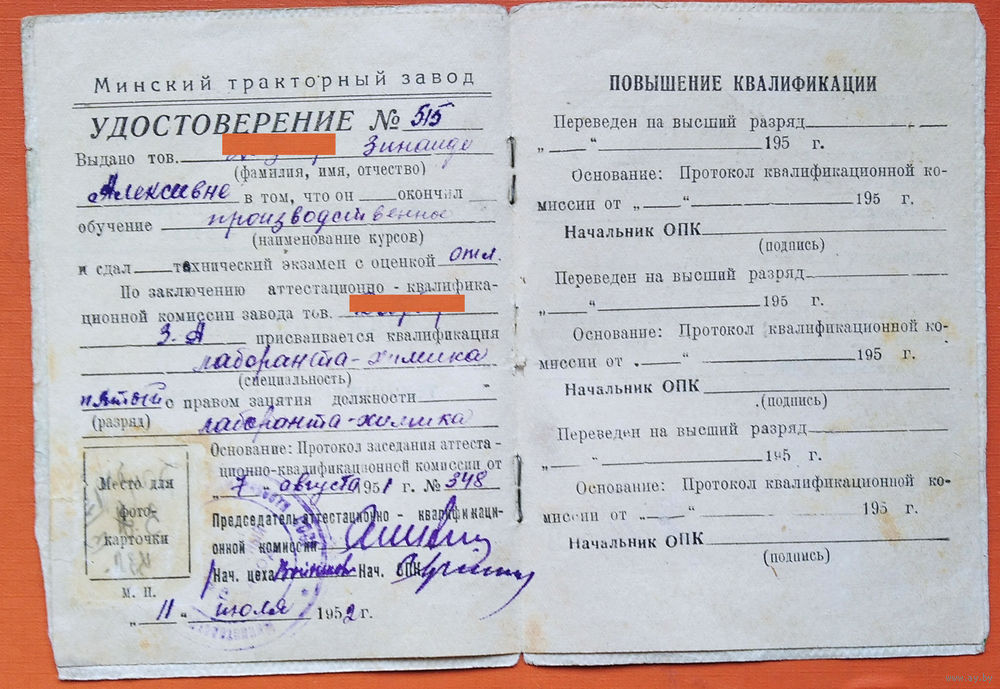 Минский тракторный завод
УДОСТОВЕРЕНИЕ № 515
Выдано тов. Зинаиде
(фамилия, имя, отчество)
Алексеевне в том, что он окончил
обучение производственные
(наименование курсов)
и сдал технический экзамен с оценкой отл.
По заключению аттестационно - квалифика-
ционной комиссии завода тов.
З. А присваивается квалификация
лаборанта-химика
(специальность)
пятый с правом занятия должности
(разряд) лаборанта-химика
Основание: Протокол заседания аттеста-
ционно-квалификационной комиссии от
„ 7 “ августа 1951 г. № 348
Место для
фото-
карточки
Председатель аттестационно - квалификаци-
онной комиссии
Нач. цеха Нач. ОПК
М. П.
„ 11 “ июля 1952 г.
ПОВЫШЕНИЕ КВАЛИФИКАЦИИ
Переведен на высший разряд
„ “ 195 г.
Основание: Протокол квалификационной ко-
миссии от „ “ 195 г.
Начальник ОПК
(подпись)
Переведен на высший разряд
„ “ 195 г.
Основание: Протокол квалификационной ко-
миссии от „ “ 195 г.
Начальник ОПК
(подпись)
Переведен на высший разряд
„ “ 195 г.
Основание: Протокол квалификационной ко-
миссии от „ “ 195 г.
Начальник ОПК
(подпись)
www.ay.by